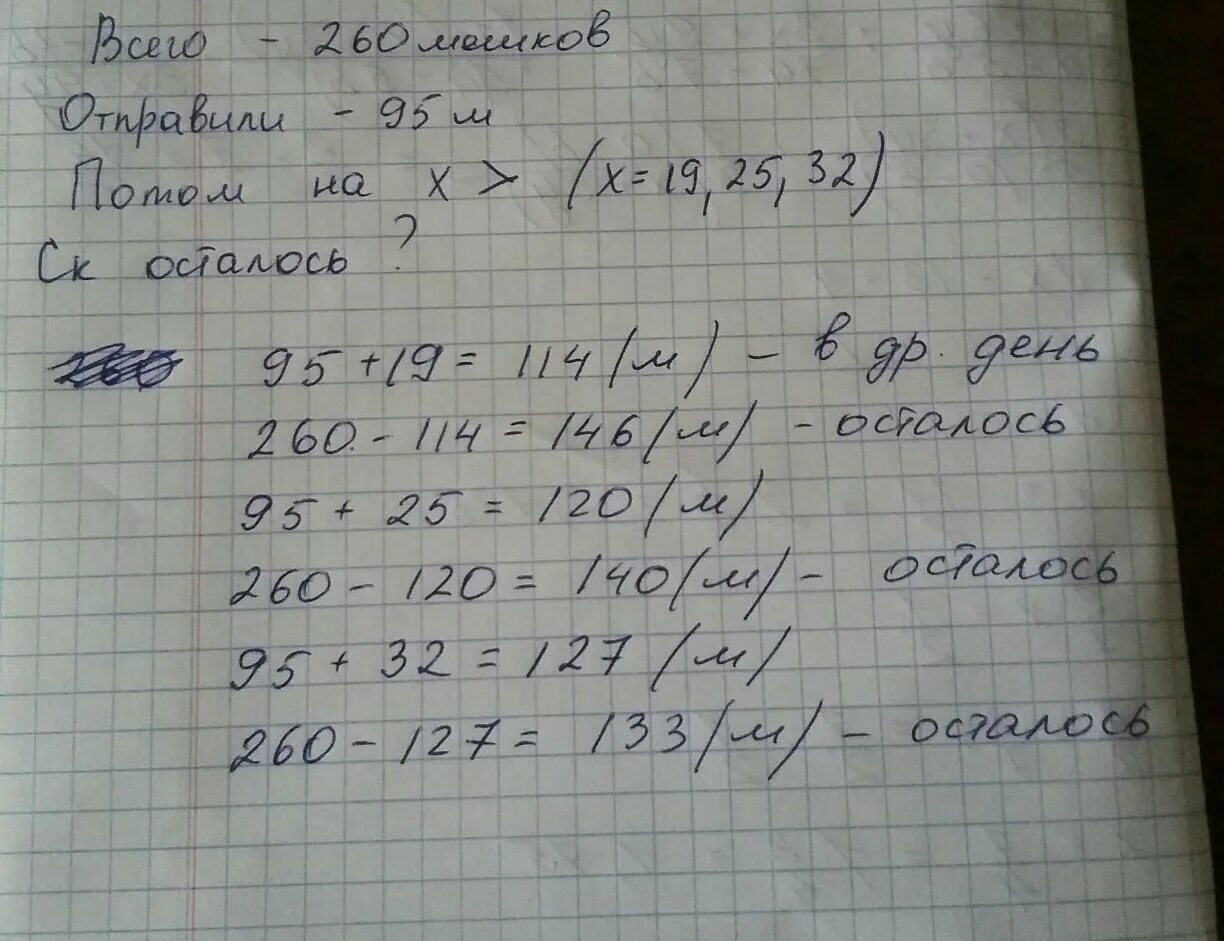 Всего - 260 мешков
Отправили - 95 м
Потом на х > (х = 19, 25, 32)
Ск осталось ?
95 + 19 = 114 (м) - в др. день
260 - 114 = 146 (м) - осталось
95 + 25 = 120 (м)
260 - 120 = 140 (м) - осталось
95 + 32 = 127 (м)
260 - 127 = 133 (м) - осталось